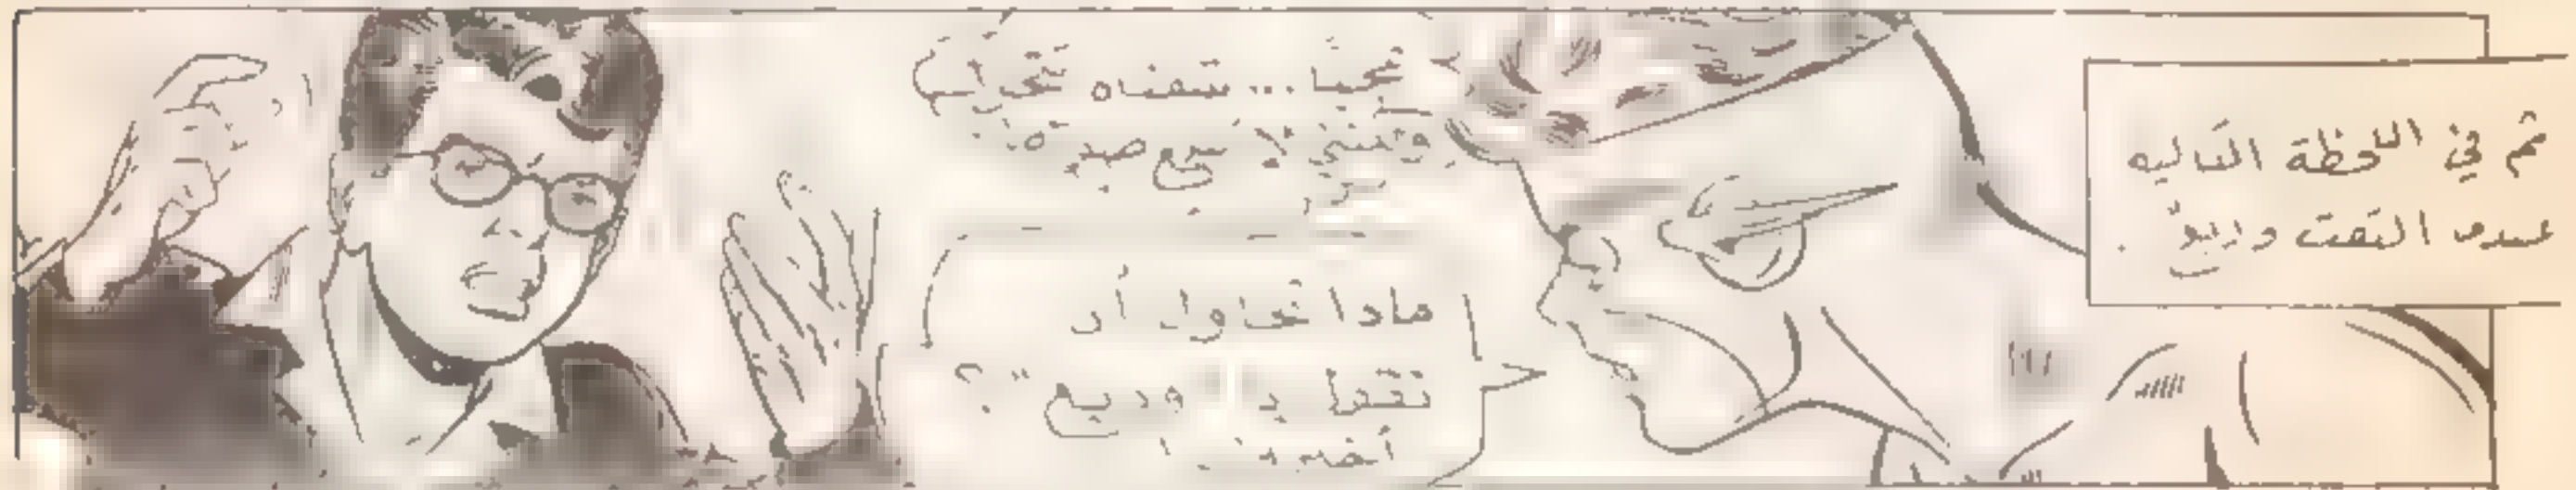 ثم في اللحظة التاليه
عندما التفت وديع
عجبًا... شفتاه تتحرك
ولكنني لا أسمع صوته!
ماذا تحاول أن
تقول يا "وديع"؟
أخبرني!